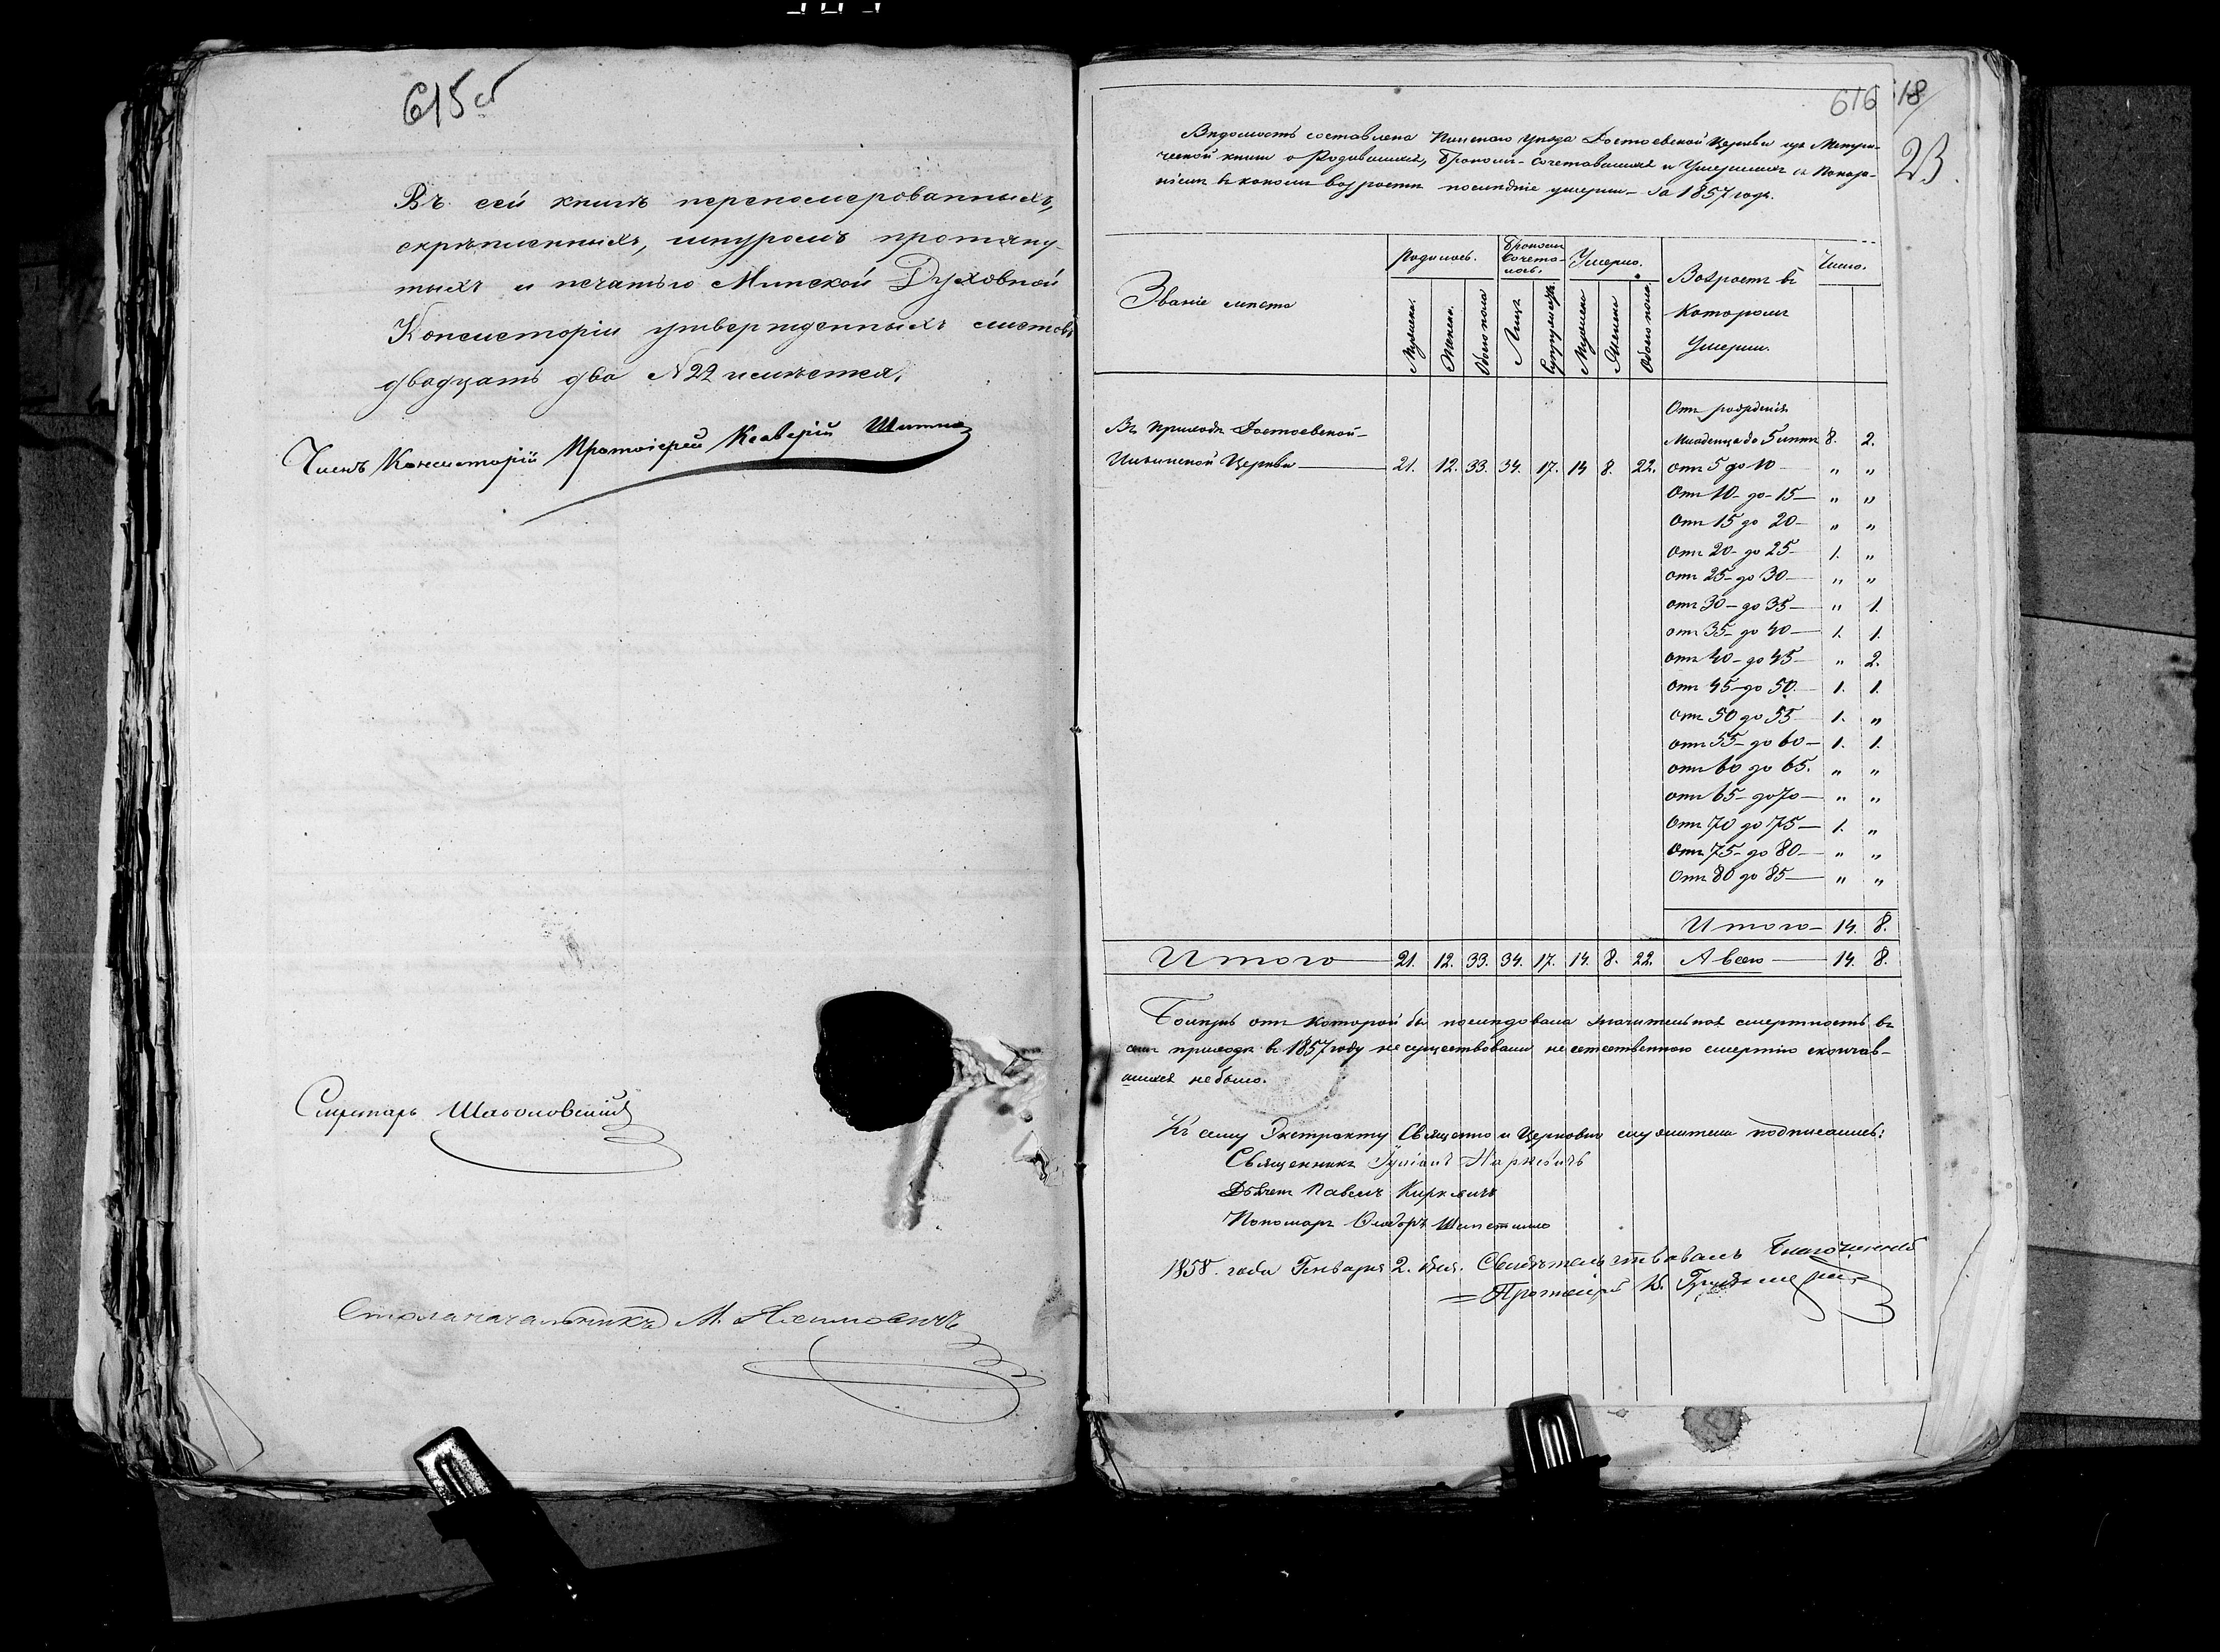 615 об
Въ сей книгѣ перепомерованныхъ,
скрѣпленныхъ, шнуромъ протяну-
тыхъ и печатью Минской Духовной
Консисторіи утвержденныхъ листовъ
двадцать два N 22 числится.
Членъ Консисторіи Протоіерей Ксаверій
Секретарь
Столоначальникъ М.
616 18
23
Вѣдомость составлена Пинскаго уѣзда Достоевской Церкви изъ Метри-
ческой книги о Родившихся, Бракомъ-сочетавшихся и Умершихъ съ Показа-
ніемъ въ какомъ возрастѣ послѣдніе умерли за 1857 годъ.
Званіе мѣста
Родилось.
Бракомъ сочета-лось.
Умерло.
Возрастъ въ Которомъ Умерли.
Число.
Мужеска. Женска. Обоего пола Лицъ Супружествъ. Мужеска Женска Обоего пола.
Отъ рожденія
Въ приходѣ Достоевской-
Младенца до 5 лѣтъ 8. 2.
Ильинской Церкви 21. 12. 33. 34. 17. 14 8. 22. отъ 5 до 10 " "
Отъ 10 до 15 " "
Отъ 15 до 20 " "
Отъ 20 до 25 1. "
отъ 25 до 30 " "
отъ 30 до 35 " 1.
отъ 35 до 40 1. 1.
отъ 40 до 45 " 2.
отъ 45 до 50 1. 1.
отъ 50 до 55 1. "
отъ 55 до 60 1. 1.
отъ 60 до 65. " "
отъ 65 до 70 " "
Отъ 70 до 75 1. "
Отъ 75 до 80 " "
Отъ 80 до 85 " "
Итого 14. 8.
Итого 21. 12. 33. 34. 17. 14. 8. 22. А всего 14. 8.
Болѣзнь отъ которой бы послѣдовала значительная смертность въ
семъ приходѣ въ 1857 году не существовали неестественною смертію скончав-
шихся не было.
Къ сему Экстракту Священно и Церковно служители подписались:
Священникъ Іуліанъ
Дьячекъ Павелъ Киркевичъ
Пономарь Ѳеодоръ
1858. года Генваря 2. дня. Свидѣтельствовалъ Благочинный
Протоіерей